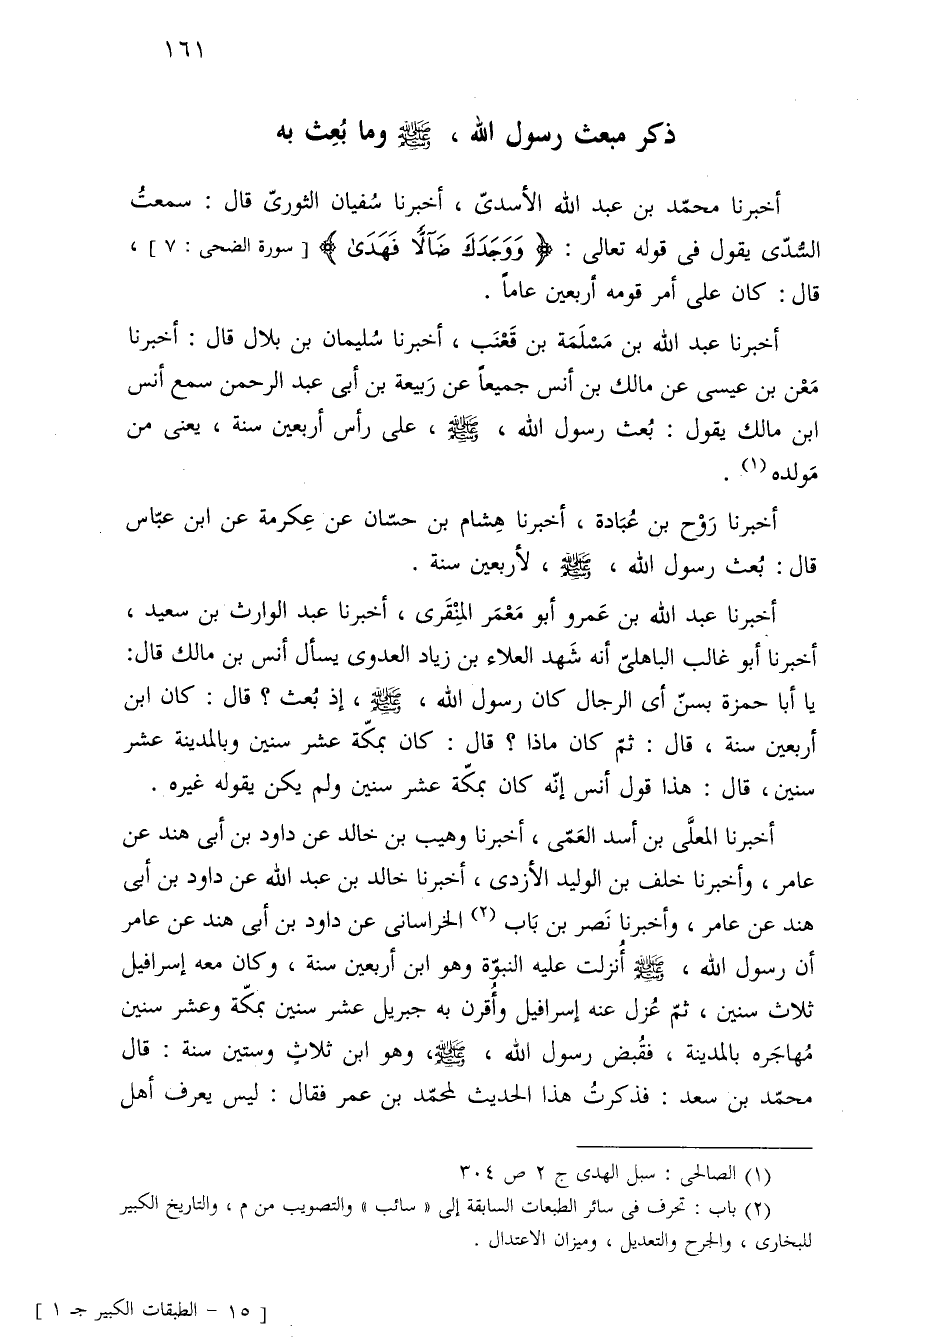 ١٦١
ذكر مبعث رسول الله ، ﷺ وما بُعِث به
أخبرنا محمّد بن عبد الله الأسدىّ ، أخبرنا سُفيان الثورىّ قال : سمعتُ
السُّدّى يقول فى قوله تعالى : ﴿ وَوَجَدَكَ ضَآلًّا فَهَدَىٰ ﴾ [ سورة الضحى : ٧ ] ،
قال : كان على أمر قومه أربعين عاماً .
أخبرنا عبد الله بن مَسْلَمَة بن قَعْنَب ، أخبرنا سُليمان بن بلال قال : أخبرنا
مَعْن بن عيسى عن مالك بن أنس جميعاً عن رَبيعة بن أبى عبد الرحمن سمع أنس
ابن مالك يقول : بُعث رسول الله ، ﷺ ، على رأس أربعين سنة ، يعنى من
مَولده (١) .
أخبرنا رَوْح بن عُبَادة ، أخبرنا هِشام بن حسّان عن عِكرمة عن ابن عبّاس
قال : بُعث رسول الله ، ﷺ ، لأربعين سنة .
أخبرنا عبد الله بن عَمرو أبو مَعْمَر المِنْقَرى ، أخبرنا عبد الوارث بن سعيد ،
أخبرنا أبو غالب الباهلىّ أنه شَهد العلاء بن زياد العدوى يسأل أنس بن مالك قال:
يا أبا حمزة بسنّ أى الرجال كان رسول الله ، ﷺ ، إذ بُعث ؟ قال : كان ابن
أربعين سنة ، قال : ثمّ كان ماذا ؟ قال : كان بمكّة عشر سنين وبالمدينة عشر
سنين، قال : هذا قول أنس إنّه كان بمكّة عشر سنين ولم يكن يقوله غيره .
أخبرنا المعلَّى بن أسد العَمّى ، أخبرنا وهيب بن خالد عن داود بن أبى هند عن
عامر ، وأخبرنا خلف بن الوليد الأزدى ، أخبرنا خالد بن عبد الله عن داود بن أبى
هند عن عامر ، وأخبرنا نَصر بن بَاب (٢) الخراسانى عن داود بن أبى هند عن عامر
أن رسول الله ، ﷺ أُنزلت عليه النبوّة وهو ابن أربعين سنة ، وكان معه إسرافيل
ثلاث سنين ، ثمّ عُزل عنه إسرافيل وأُقرن به جبريل عشر سنين بمكّة وعشر سنين
مُهاجَره بالمدينة ، فقُبض رسول الله ، ﷺ، وهو ابن ثلاثٍ وستين سنة : قال
محمّد بن سعد : فذكرتُ هذا الحديث لمحمّد بن عمر فقال : ليس يعرف أهل
(١) الصالحى : سبل الهدى ج ٢ ص ٣٠٤
(٢) باب : تحرف فى سائر الطبعات السابقة إلى « سائب » والتصويب من م ، والتاريخ الكبير
للبخارى ، والجرح والتعديل ، وميزان الاعتدال .
[ ١٥ - الطبقات الكبير جـ ١ ]